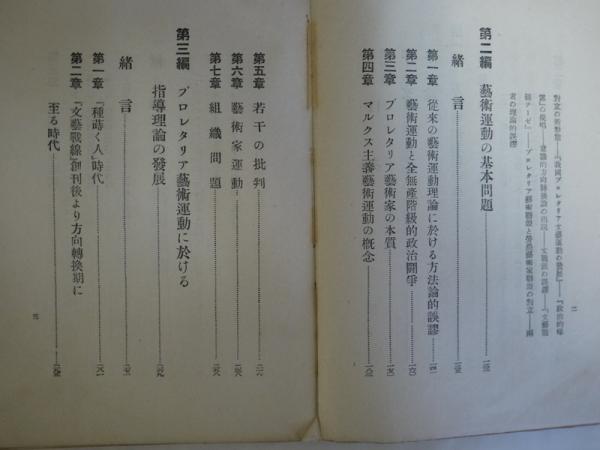 對立の諸形態——『我國プロレタリア文藝運動の發展』——『政治的曝
露』の提唱——意識的方向轉換論の出現——文戰派の誤謬——『文藝戰
線テーゼ』——プロレタリア藝術聯盟と勞農藝術家聯盟の對立——兩
者の理論的誤謬
第二編 藝術運動の基本問題
緒言
第一章 從來の藝術運動理論に於ける方法論的誤謬
第二章 藝術運動と全無產階級的政治鬪爭
第三章 プロレタリア藝術家の本質
第四章 マルクス主義藝術運動の概念
第五章 若干の批判
第六章 藝術家運動
第七章 組織問題
第三編 プロレタリア藝術運動に於ける
指導理論の發展
緒言
第一章 『種蒔く人』時代
第二章 『文藝戰線』創刊後より方向轉換期に
至る時代